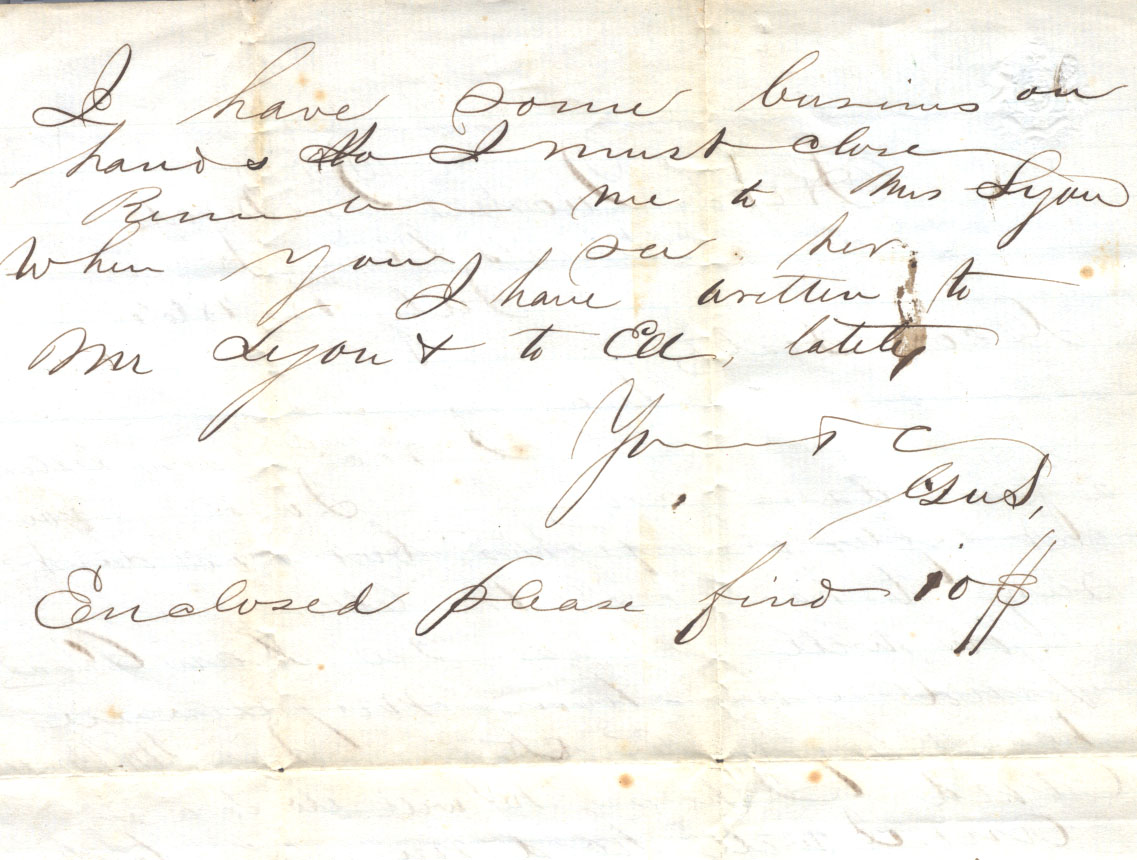 I have some business on
hands so I must close
Remember me to Mrs Lyon
When you see her.
I have written to
Mr Lyon & to Ed, lately
Yours &c
Gus,
Enclosed please find 10 $